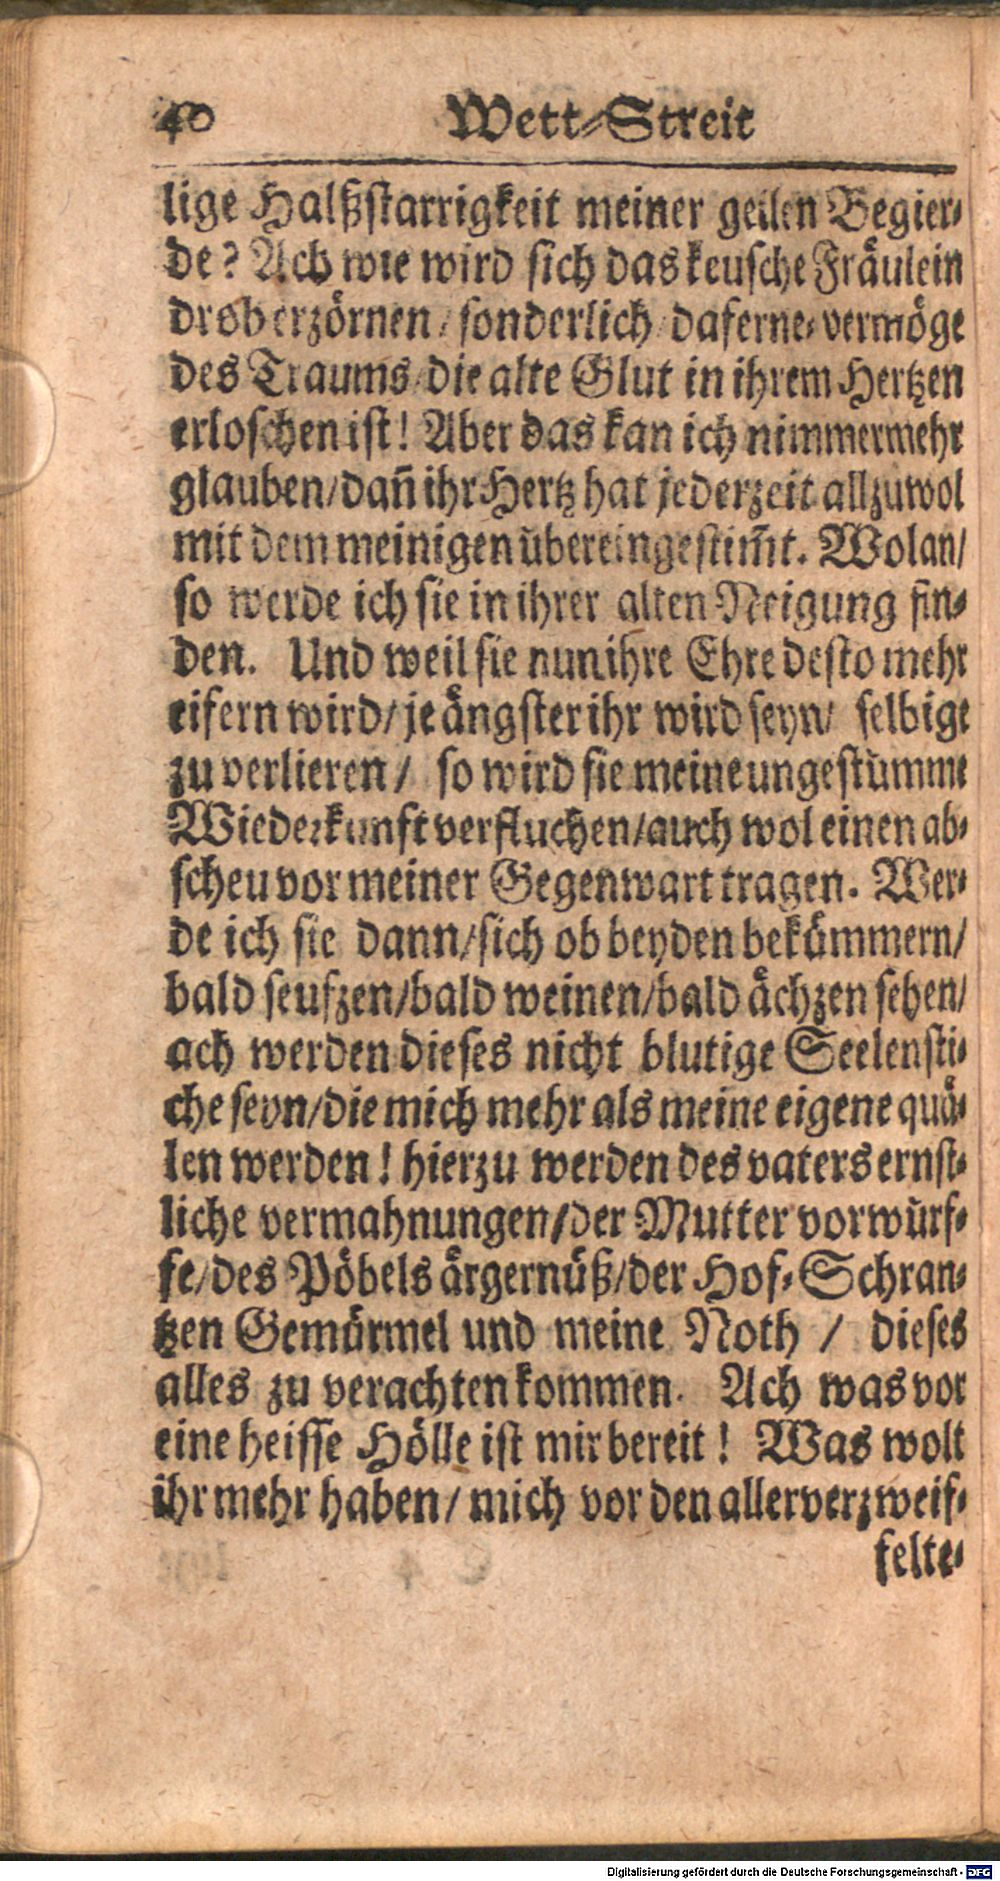 40 Wett-Streit
lige Halßstarrigkeit meiner geilen Begier-
de? Ach wie wird sich das keusche Fräulein
drob erzörnen / sonderlich / daferne / vermöge
des Traums / die alte Glut in ihrem Hertzen
erloschen ist! Aber das kan ich nimmermehr
glauben / dañ ihr Hertz hat jederzeit allzuwol
mit dem meinigen übereingestim̃t. Wolan /
so werde ich sie in ihrer alten Neigung fin-
den. Und weil sie nun ihre Ehre desto mehr
eifern wird / je ängster ihr wird seyn / selbige
zu verlieren / so wird sie meine ungestümme
Wiederkunft verfluchen / auch wol einen ab-
scheu vor meiner Gegenwart tragen. Wer-
de ich sie dann / sich ob beyden bekümmern /
bald seufzen / bald weinen / bald ächzen sehen /
ach werden dieses nicht blutige Seelensti-
che seyn / die mich mehr als meine eigene quä-
len werden! hierzu werden des vaters ernst-
liche vermahnungen / der Mutter vorwürf-
fe / des Pöbels ärgernüß / der Hof-Schran-
tzen Gemürmel und meine Noth / dieses
alles zu verachten kommen. Ach was vor
eine heisse Hölle ist mir bereit! Was wolt
ihr mehr haben / mich vor den allerverzweif-
felte-
Digitalisierung gefördert durch die Deutsche Forschungsgemeinschaft - DFG